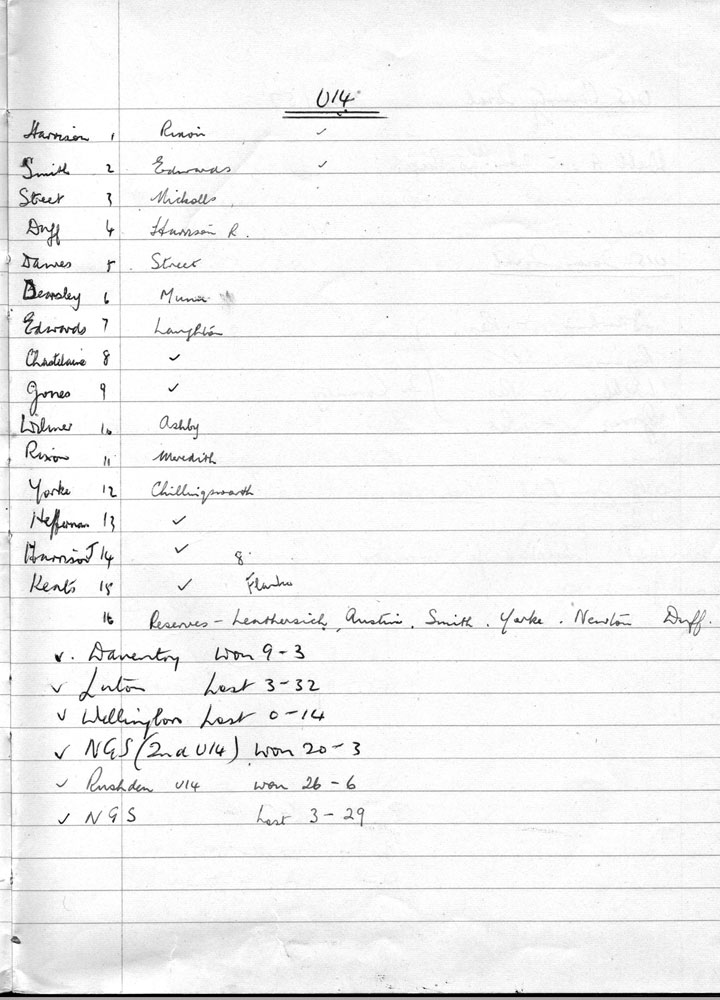 U14
Harrison 1 Rixon ✓
Smith 2 Edwards ✓
Street 3 Nickolls
Duff 4 Harrison R.
Dawes 5 Street
Bearsley 6 Munn
Edwards 7 Laughton
Chastelaine 8 ✓
Jones 9 ✓
Wilmer 10 Ashby
Rixon 11 Meredith
Yorke 12 Chillingsworth
Heffernan 13 ✓
Harrison J 14 ✓ 8.
Keats 15 ✓
16 Reserves - Leathersich, Austin. Smith. Yorke. Newton Duff.
✓. Daventry Won 9-3
✓ Luton Lost 3-32
✓ Wellingboro Lost 0-14
✓ NGS (2nd U14) Won 20-3
✓ Rushden U14 won 26-6
✓ NGS Lost 3-29